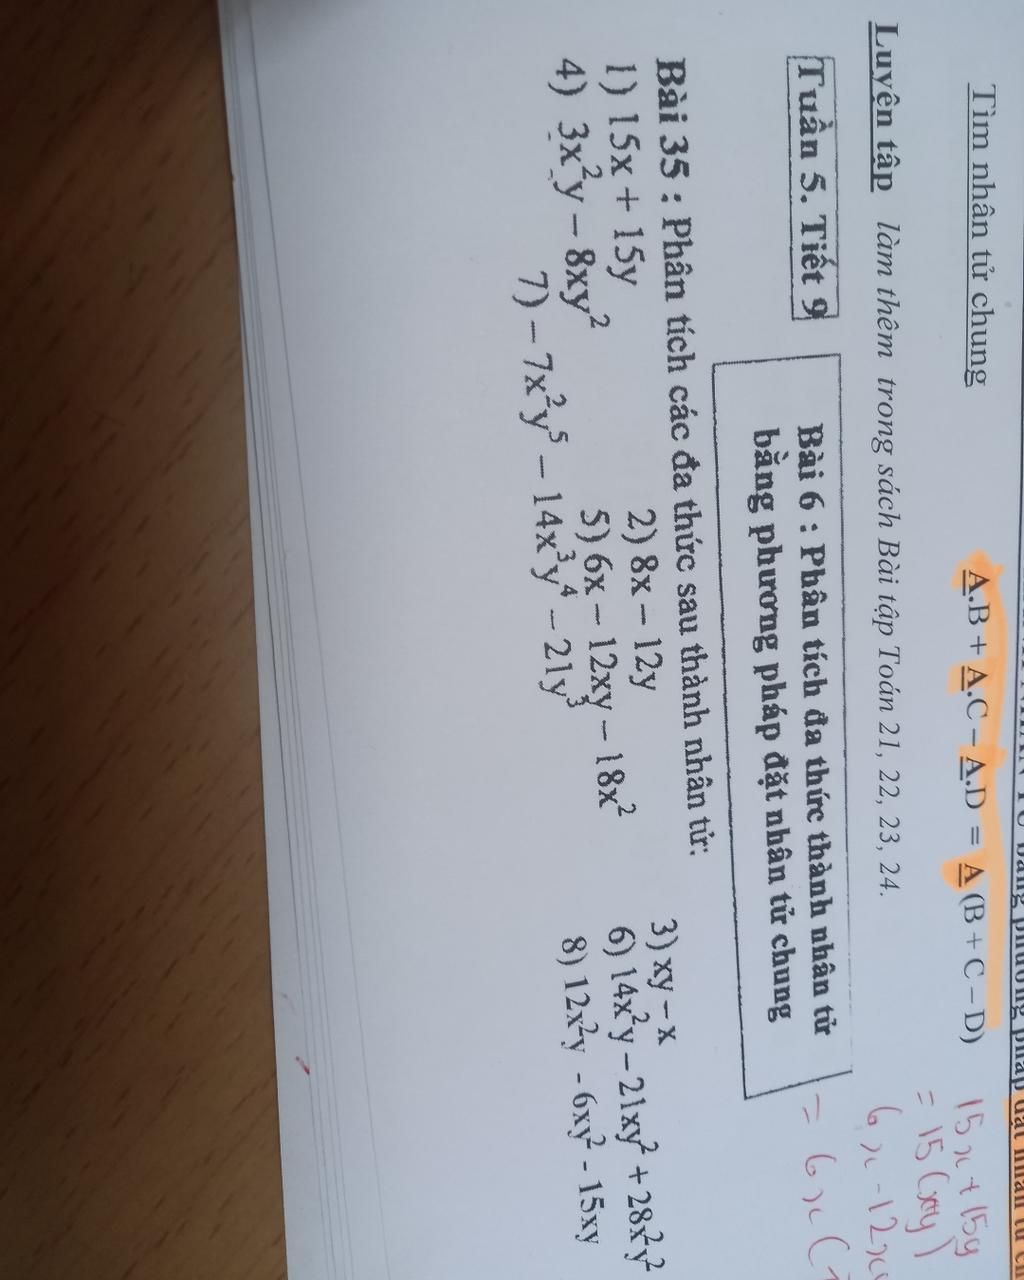 bằng phương pháp đặt nhân tử
Tìm nhân tử chung
A.B + A.C – A.D = A (B + C – D)
15x + 15y
= 15(x+y)
Luyện tập làm thêm trong sách Bài tập Toán 21, 22, 23, 24.
6x - 12x
= 6x (
Tuần 5. Tiết 9
Bài 6 : Phân tích đa thức thành nhân tử
bằng phương pháp đặt nhân tử chung
Bài 35 : Phân tích các đa thức sau thành nhân tử:
1) 15x + 15y 2) 8x – 12y 3) xy – x
4) 3x²y – 8xy² 5) 6x – 12xy – 18x² 6) 14x²y – 21xy² + 28x²y²
7) – 7x²y⁵ – 14x³y⁴ – 21y³ 8) 12x²y - 6xy² - 15xy